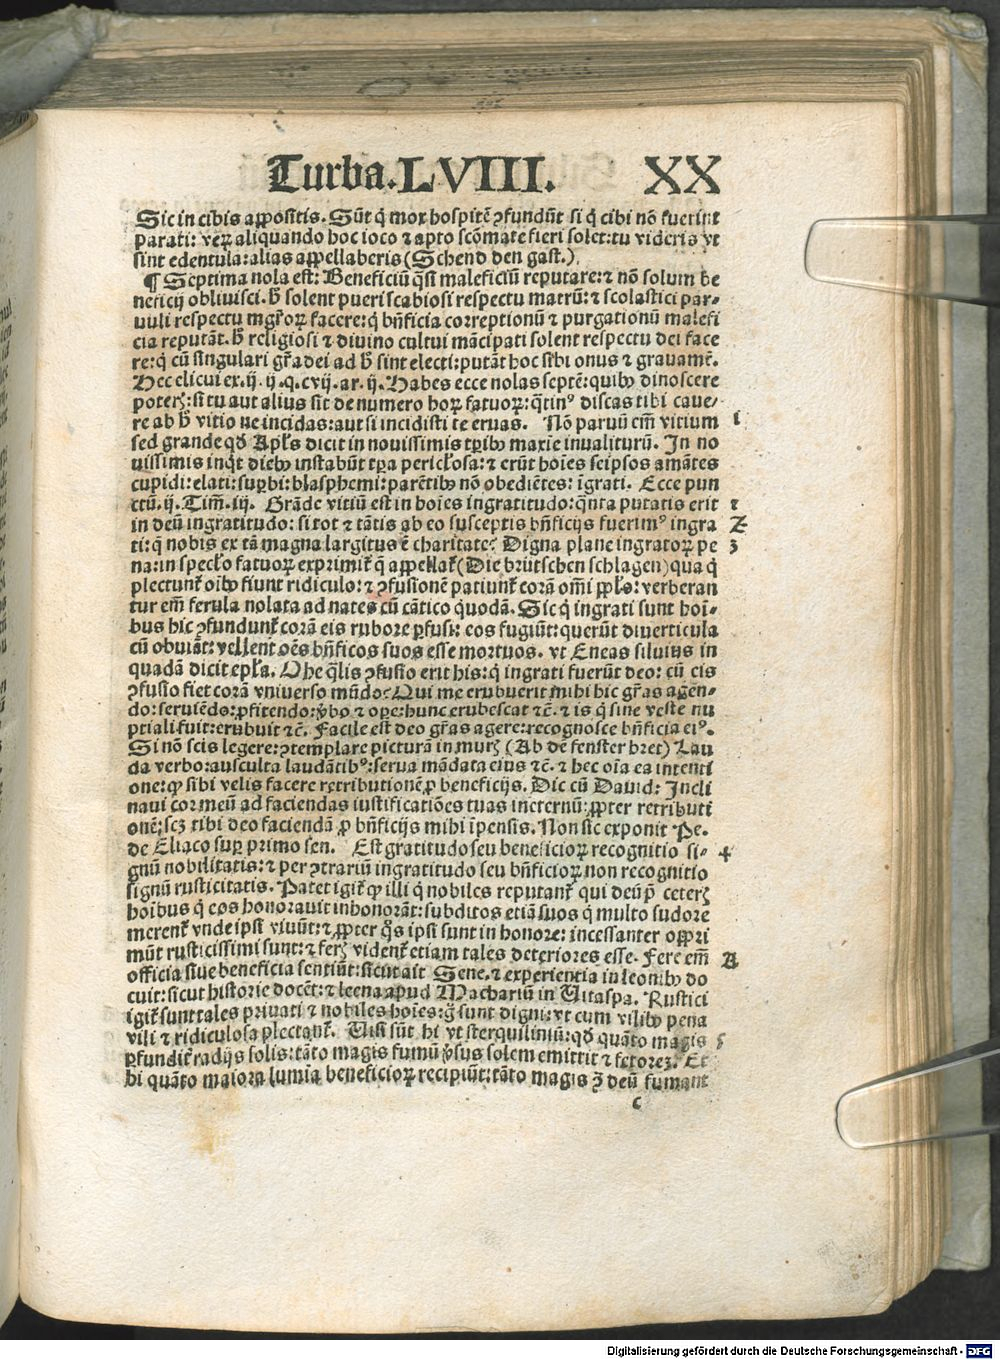 Turba.LVIII. XX
Sic in cibis appositis. Sūt q̇ mox hospitē ꝯfundūt si q̇ cibi nō fuerint
parati: verꝝ aliquando hoc ioco ⁊ apto scōmate fieri solet: tu videris vt
sint edentula: alias appellaberis (Schend den gast.)
¶ Septima nola est: Beneficiū q̄si maleficiū reputare: ⁊ nō solum be
neficij obliuisci. hͦ solent pueri scabiosi respectu matrū: ⁊ scolastici par-
uuli respectu mgr̄orꝝ facere: q̇ bn̄ficia correptionū ⁊ purgationū malefi
cia reputāt. hͦ religiosi ⁊ diuino cultui mācipati solent respectu dei face
re: q̇ cū singulari gr̄a dei ad hͦ sint electi: putāt hoc sibi onus ⁊ grauamē.
Hec elicui ex. ij. ij. q. cvij. ar. ij. Habes ecce nolas septē: quibꝰ dinoscere
poterꝭ: si tu aut alius sit de numero horꝝ fatuorꝝ: q̄tinꝰ discas tibi caue-
re ab hͦ vitio ne incidas: aut si incidisti te eruas. Nō paruū em̄ vitium i
sed grande qd̄ Apl̄s dicit in nouissimis tp̄ibꝰ maxīe inualiturū. In no
uissimis inq̇t diebꝰ instabūt tp̄a pericl̄osa: ⁊ erūt hoīes seipsos amātes
cupidi: elati: suꝑbi: blasphemi: parētibꝰ nō obediētes: īgrati. Ecce pun
ctū. ij. Tim̄. iij. Grāde vitiū est in hoīes ingratitudo: q̄nta putatis erit ⁊
in deū ingratitudo: si tot ⁊ tātis ab eo susceptis bn̄ficijs fuerimꝰ ingra 2
ti: q̇ nobis ex tā magna largitus ē charitate? Digna plane ingratorꝝ pe 3
na: in specl̄o fatuorꝝ exprimit᷑ q̄ appellat᷑ (Die brütschen schlagen) qua q̇
plectunt᷑ oībꝰ fiunt ridiculo: ⁊ ꝯfusionē patiunt᷑ corā om̄i pp̄lo: verberan
tur em̄ ferula nolata ad nates cū cātico quodā. Sic q̇ ingrati sunt hoī-
bus hic ꝯfundunt᷑ corā eis rubore ꝑfusi: eos fugiūt: querūt diuerticula
cū obuiāt: vellent oēs bn̄ficos suos esse mortuos. vt Eneas siluius in
quadā dicit epl̄a. Ohe q̄lis ꝯfusio erit his: q̇ ingrati fuerūt deo: cū eis
ꝯfusio fiet corā vniuerso mūdo? Qui me erubuerit mihi hic gr̄as agen-
do: seruiēdo: ꝓfitendo: v̄bo ⁊ oꝑe: hunc erubescat ⁊c̄. ⁊ is q̇ sine veste nu
ptiali fuit: erubuit ⁊c̄. Facile est deo gr̄as agere: recognosce bn̄ficia eiꝰ.
Si nō scis legere: ꝯtemplare picturā in murꝭ (Ab dē fenster bret) Lau
da verbo: ausculta laudātibꝰ: serua mādata eius ⁊c̄. ⁊ hec oīa ea intenti
one: ꝙ sibi velis facere retributionē ꝓ beneficijs. Dic cū Dauid: Incli
naui cor meū ad faciendas iustificatiōes tuas ineternū: ꝓpter retributi
onē: scꝫ tibi deo faciendā ꝓ bn̄ficijs mihi īpensis. Non sic exponit Pe.
de Eliaco suꝑ primo sen. Est gratitudo seu beneficiorꝝ recognitio si- 4
gnū nobilitatis: ⁊ per ꝯtrariū ingratitudo seu bn̄ficiorꝝ non recognitio
signū rusticitatis. Patet igit᷑ ꝙ illi q̇ nobiles reputant᷑ qui deū p̄ ceterꝭ
hoībus q̇ eos honorauit inhonorāt: subditos etiā suos q̇ multo sudore
merent᷑ vnde ipsi viuūt: ⁊ ꝓpter q̊s ipsi sunt in honore: incessanter oppri
mūt rusticissimi sunt: ⁊ ferꝭ vident᷑ etiam tales deteriores esse. Fere em̄ A
officia siue beneficia sentiūt: sicut ait Sene. ⁊ experientia in leonibꝰ do
cuit: sicut historie docēt: ⁊ leena apud Machariū in Vitaspa. Rustici
igit᷑ sunt tales priuati ⁊ nobiles hoīes: q̄ sunt digni: vt cum vilibꝰ pena
vili ⁊ ridiculosa plectant᷑. Nisi sūt hi vt sterquiliniū: qd̄ quāto magis
ꝑfundit᷑ radijs solis: tāto magis fumū v̄sus solem emittit ⁊ fetorez. Et
hi quāto maiora lumīa beneficiorꝝ recipiūt: tāto magis ꝯ̄ deū fumant
c
Digitalisierung gefördert durch die Deutsche Forschungsgemeinschaft - DFG